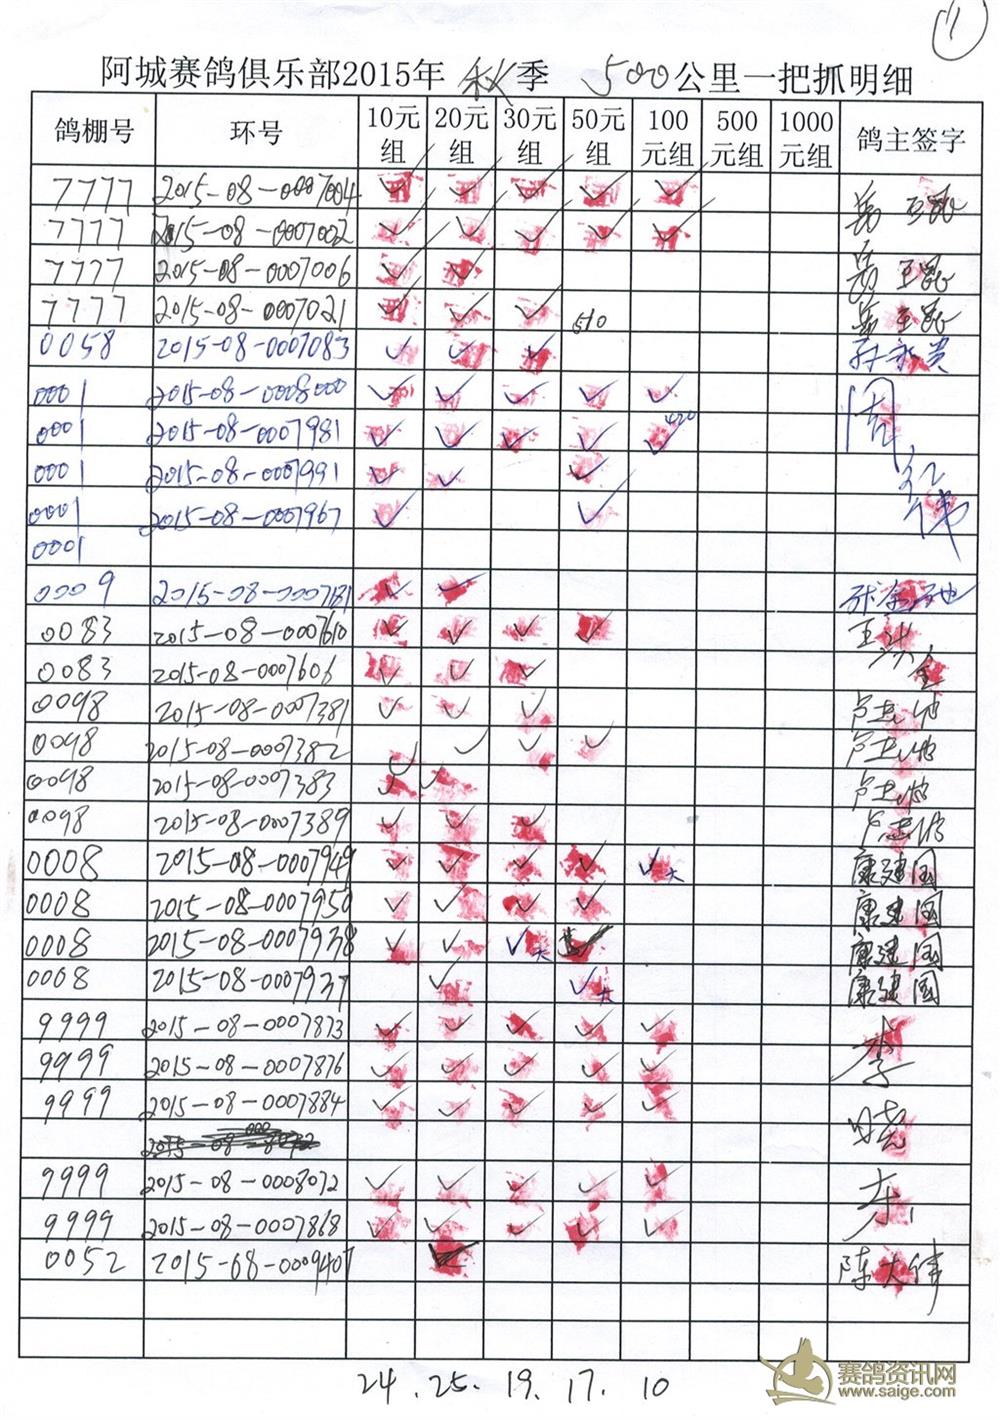 1
阿城赛鸽俱乐部2015年 秋季 500公里一把抓明细
鸽棚号 环号 10元组 20元组 30元组 50元组 100元组 500元组 1000元组 鸽主签字
7777 2015-08-0007004 ✓ ✓ ✓ ✓ ✓
7777 2015-08-0007002 ✓ ✓ ✓ ✓ ✓
7777 2015-08-0007006 ✓ ✓
7777 2015-08-0007021 ✓ ✓ ✓ 510
0058 2015-08-0007083 ✓ ✓ ✓
0001 2015-08-0008000 ✓ ✓ ✓ ✓ ✓ 周
0001 2015-08-0007981 ✓ ✓ ✓ ✓ ✓ 420
0001 2015-08-0007991 ✓ ✓ ✓
0001 2015-08-0007967 ✓ ✓
0001
0009 2015-08-0007181 ✓ ✓
0083 2015-08-0007610 ✓ ✓ ✓ ✓
0083 2015-08-0007606 ✓ ✓ ✓
0098 2015-08-0007381 ✓ ✓ ✓
0098 2015-08-0007382 ✓ ✓ ✓ ✓
0098 2015-08-0007383 ✓ ✓
0098 2015-08-0007389 ✓ ✓ ✓
0008 2015-08-0007949 ✓ ✓ ✓ ✓ ✓大 康建国
0008 2015-08-0007950 ✓ ✓ ✓ ✓ 康建国
0008 2015-08-0007938 ✓ ✓ ✓大 康建国
0008 2015-08-0007937 ✓ ✓大 康建国
9999 2015-08-0007873 ✓ ✓ ✓ ✓ ✓ 李
9999 2015-08-0007876 ✓ ✓ ✓ ✓ ✓
9999 2015-08-0007884 ✓ ✓ ✓ ✓ ✓ 晓
9999 2015-08-0008072 ✓ ✓ ✓ ✓ ✓ 东
9999 2015-08-0007868 ✓ ✓ ✓ ✓ ✓
0052 2015-08-0009407 ✓ 陈大伟
24. 25. 19. 17. 10
赛鸽资讯网
www.saige.com